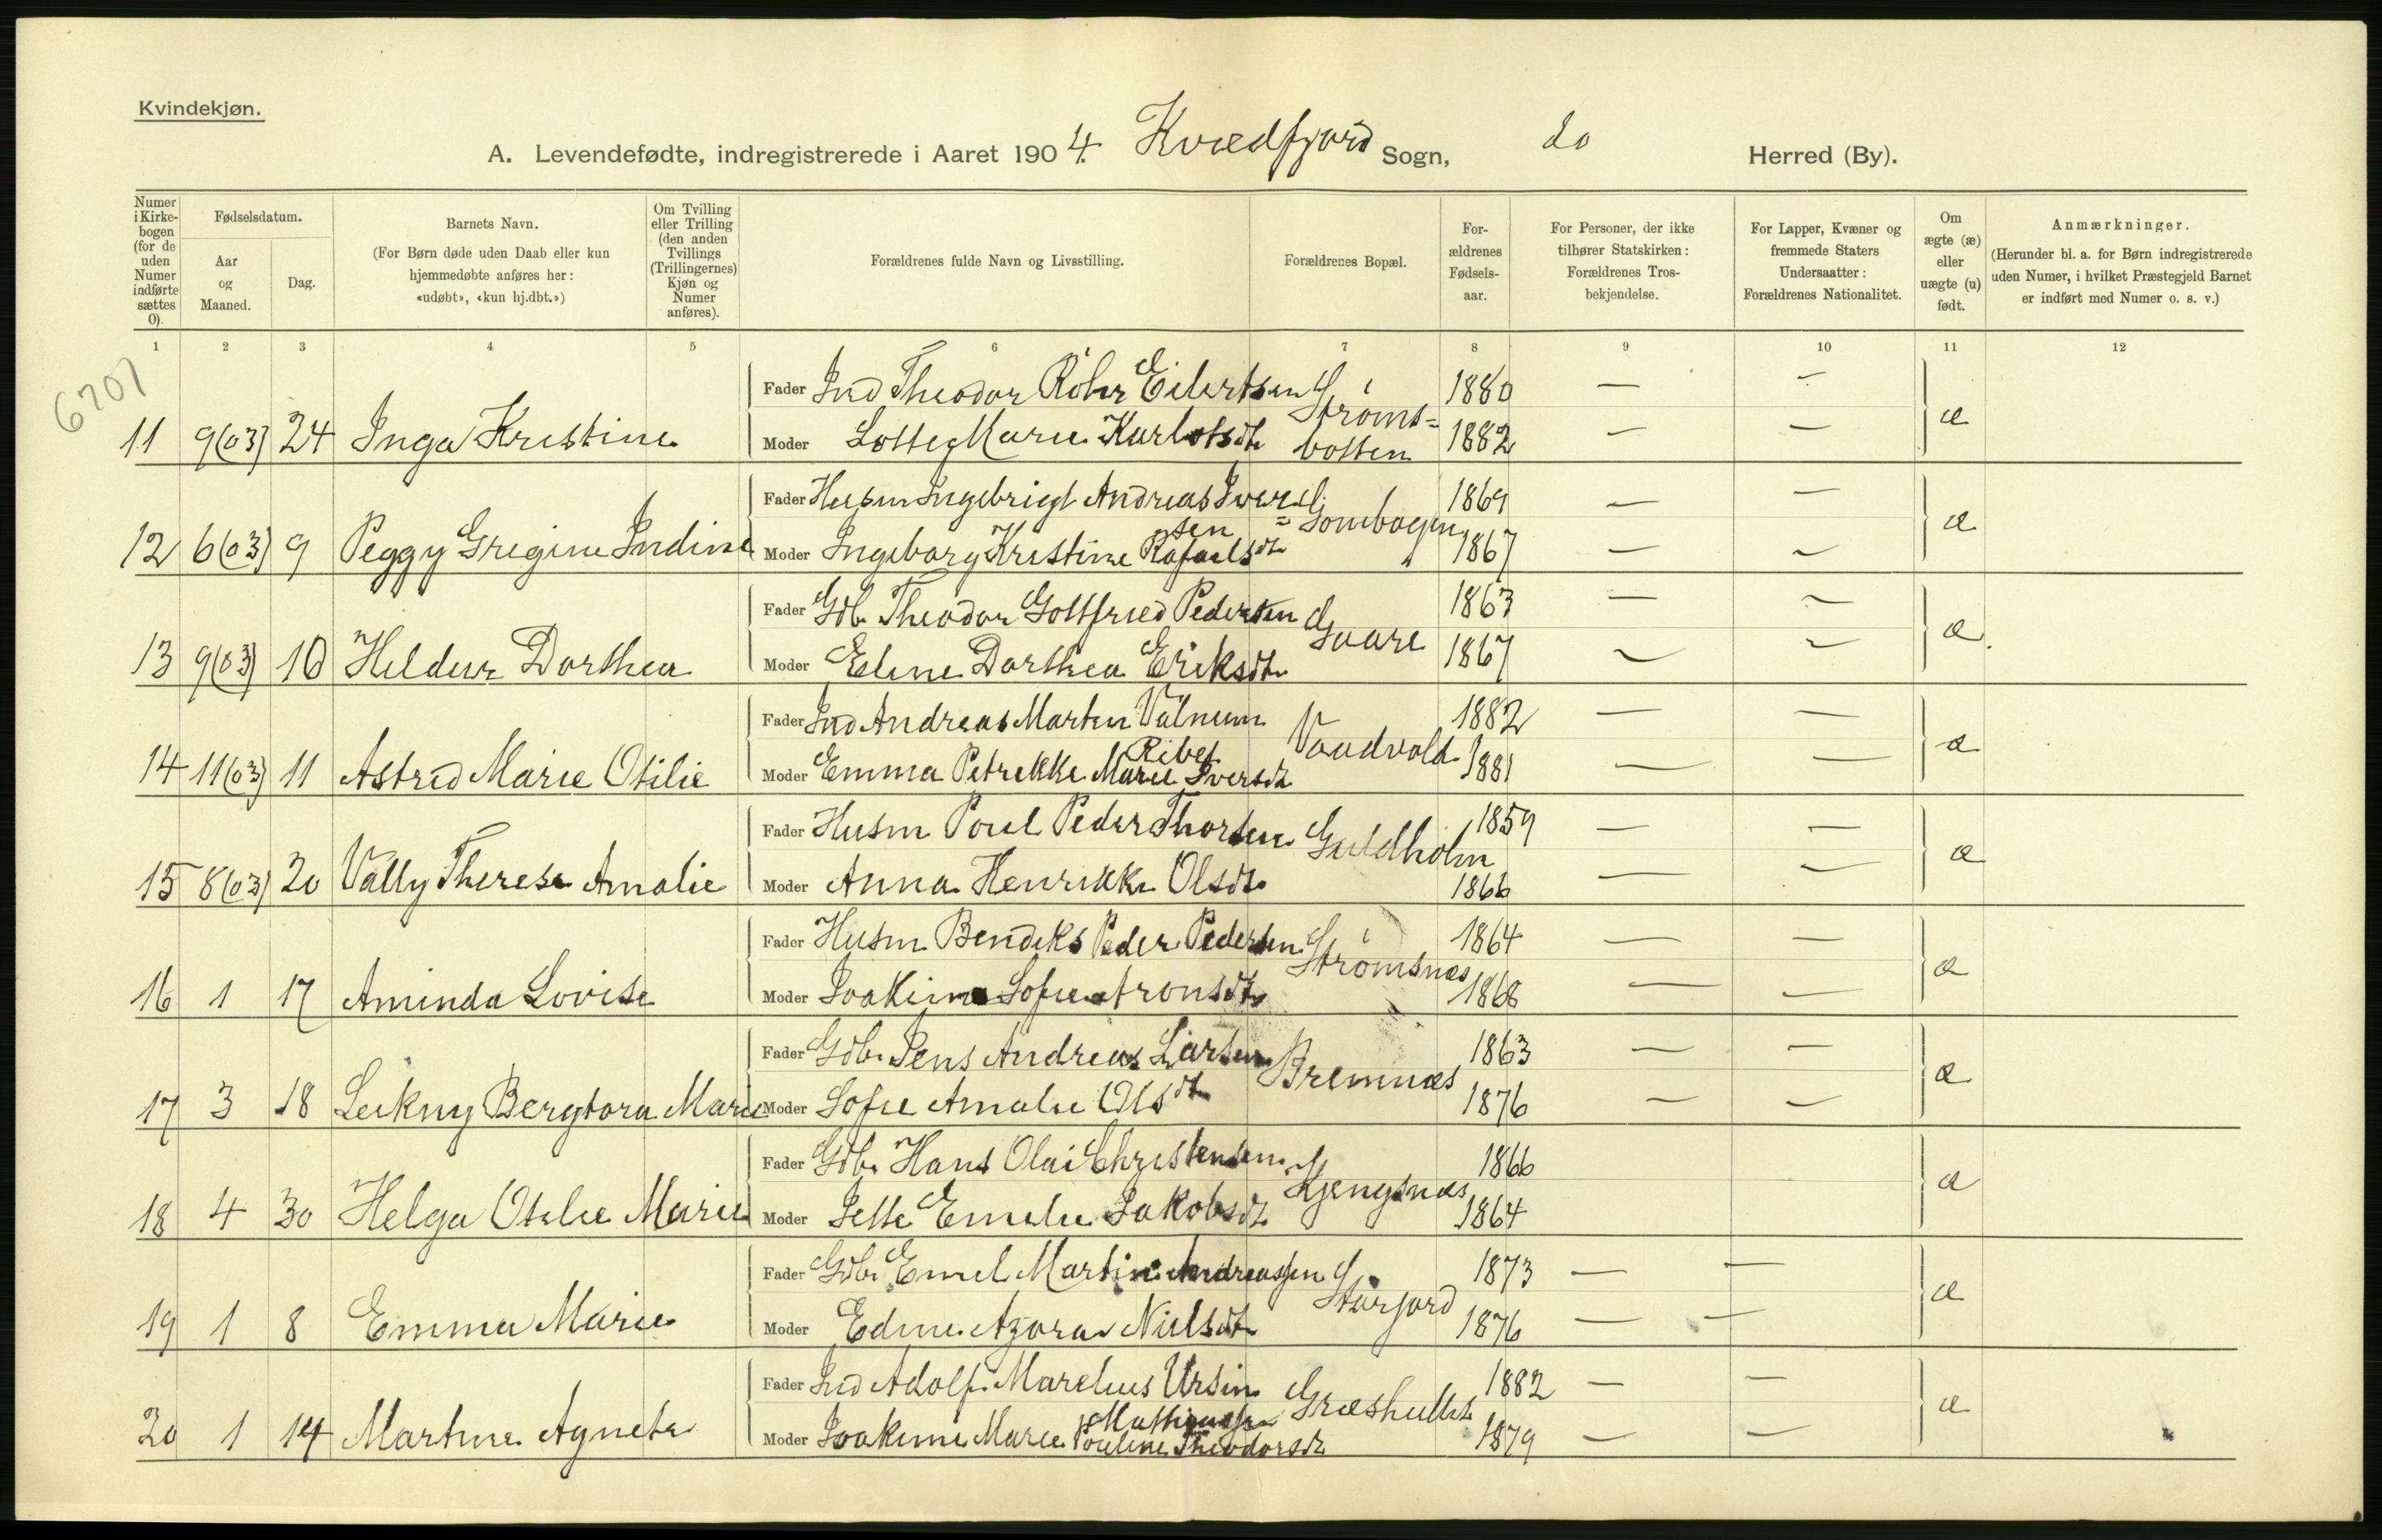 Kvindekjøn.
A. Levendefødte, indregistrerede i Aaret 1904. Kvædfjord Sogn, do Herred (By).
Numer i Kirkebogen (for de uden Numer indførte sættes 0).
Fødselsdatum.
Aar og Maaned.
Dag.
Barnets Navn.
(For Børn døde uden Daab eller kun hjemmedøbte anføres her: «udøbt», «kun hj.dbt.»)
Om Tvilling eller Trilling (den anden Tvillings (Trillingernes) Kjøn og Numer anføres).
Forældrenes fulde Navn og Livsstilling.
Forældrenes Bopæl.
Forældrenes Fødselsaar.
For Personer, der ikke tilhører Statskirken: Forældrenes Trosbekjendelse.
For Lapper, Kvæner og fremmede Staters Undersaatter: Forældrenes Nationalitet.
Om ægte (æ) eller uægte (u) født.
Anmærkninger.
(Herunder bl. a. for Børn indregistrerede uden Numer, i hvilket Præstegjeld Barnet er indført med Numer o. s. v.)
1 2 3 4 5 6 7 8 9 10 11 12
6701
Fader Ind Theodor Röhr Eilertsen Strøms= 1880 — —
11 9(03) 24 Inga Kristine Moder Lotte Marie Karlotsdtr botten 1882 — — æ
Fader Husm Ingebrigt Andreas Iver= Gombogen 1869 — —
sen
12 6(03) 9 Peggy Gregine Indine Moder Ingeborg Kristine Rafaelsdtr 1867 — — æ
Fader Gdb. Theodor Gottfried Pedersen Gaare 1863 — —
13 9(03) 10 Heldur Dorthea Moder Eline Dorthea Eriksdtr 1867 — — æ.
Fader Ind Andreas Martin Valnum Vaadvold 1882 — —
Ribet
14 11(03) 11 Astrid Marie Otilie Moder Emma Petrikke Marie Iversdtr 1881 — — æ
Fader Husm Poul Peder Thorsen Guldholm 1859 — —
15 8(03) 20 Vally Therese Amalie Moder Anna Henrikke Olsdtr 1866 — — æ
Fader Husm Bendiks Peder Pedersen Strømsnæs 1864 — —
16 1 17 Aminda Lovise Moder Joakima Sofie Aronsdtr 1868 — — æ
Fader Gdb. Jens Andreas Larsen Bremnæs 1863 — —
17 3 18 Leikny Bergtora Marie Moder Sofie Amalie Olsdtr 1876 — — æ
Fader Gdb. Hans Olai Christensen Kjengsnæs 1866
18 4 30 Helga Otelie Marie Moder Jette Emelie Jakobsdtr 1864 æ
Fader Gdb. Emil Martin Andreassen Storjord 1873 — —
19 1 8 Emma Marie Moder Edine Azora Nielsdtr 1876 — — æ
Fader Ind Adolf Marelius Ursin Græsholtet 1882 — —
Mathiassen
20 1 14 Martine Agnete Moder Joakime Marie Pouline Theodorsdtr 1879 — — æ